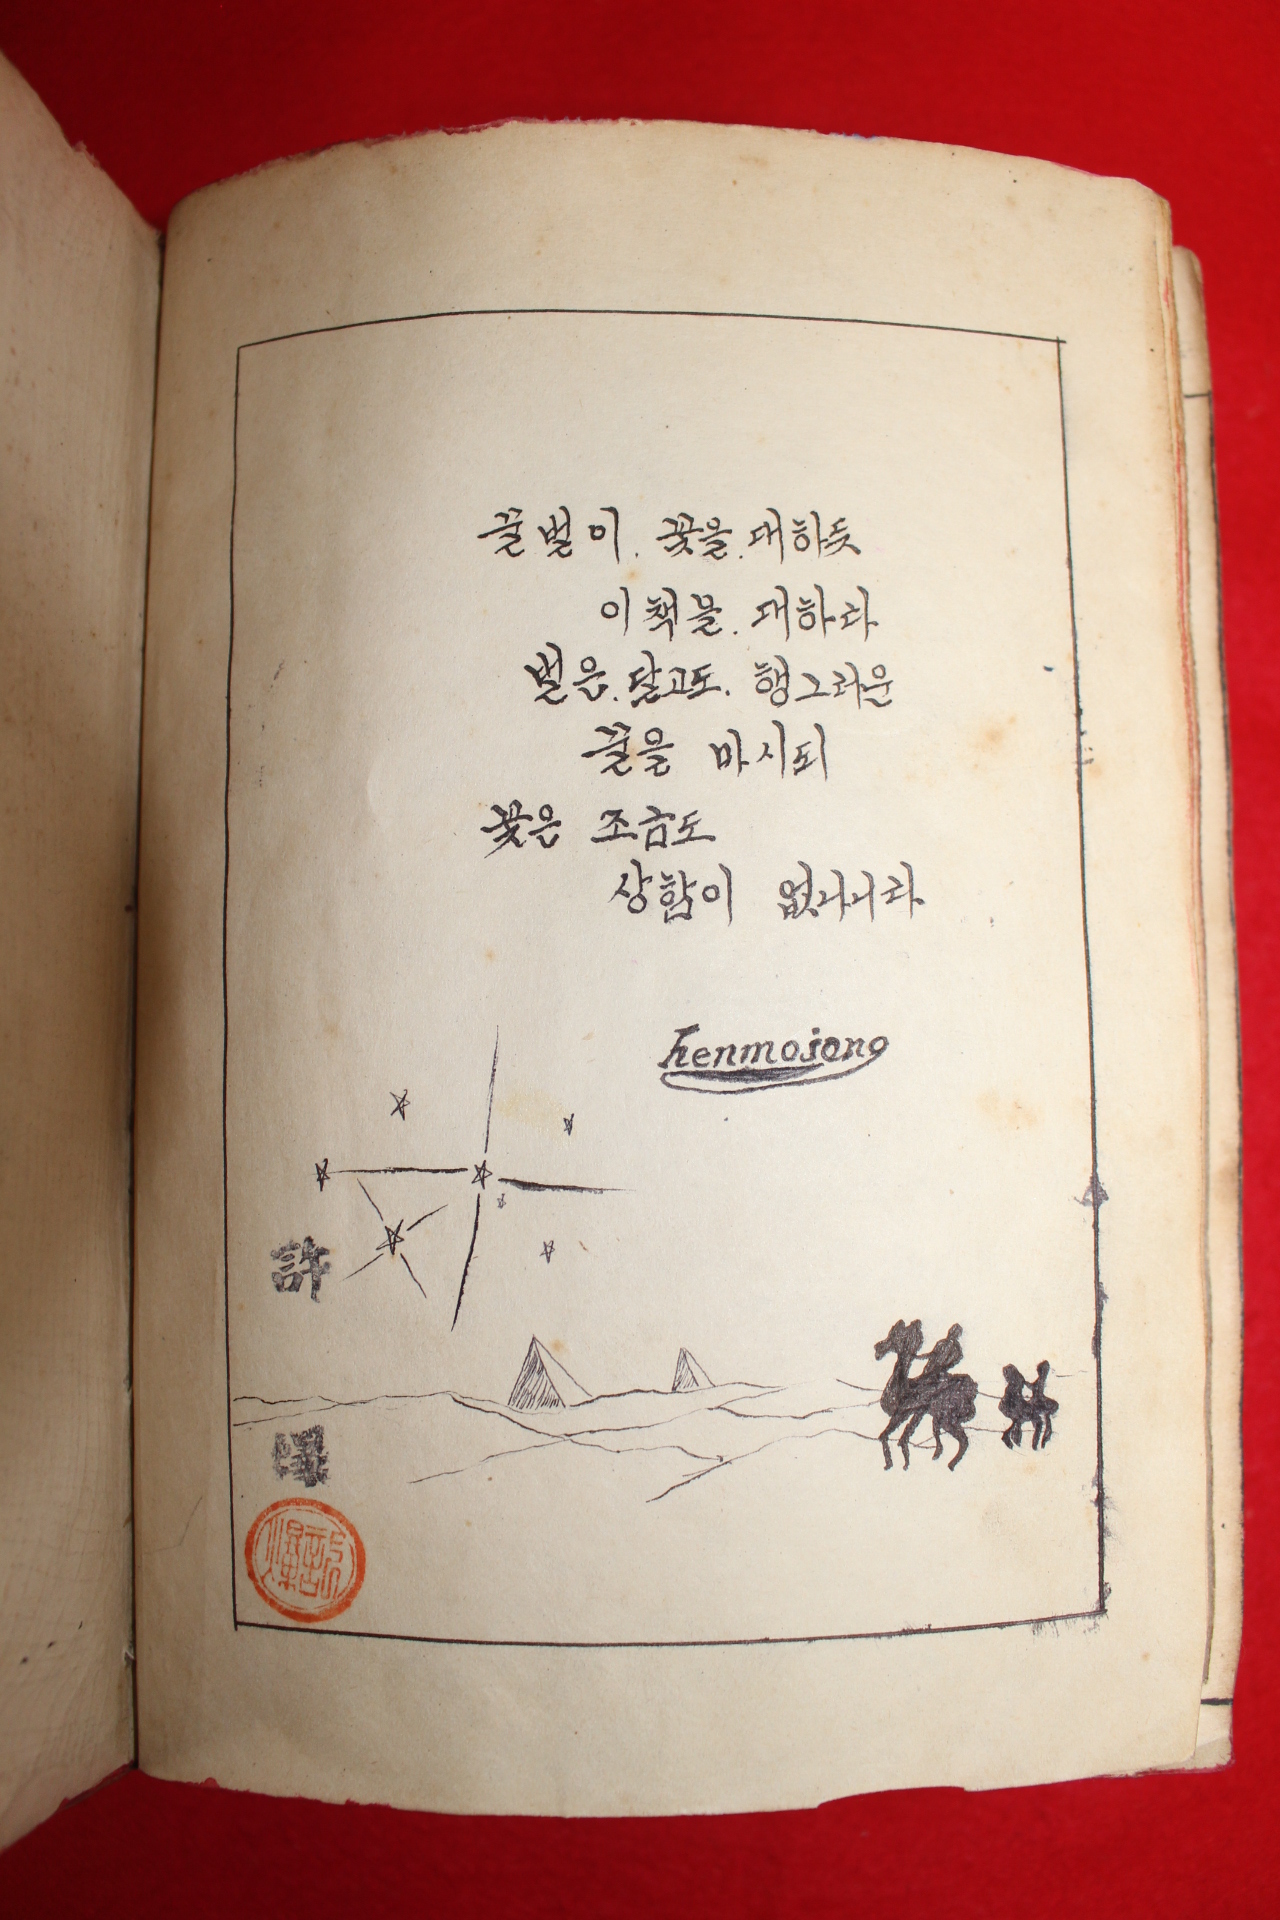 꿀벌이. 꽃을. 대하듯
이책을. 대하라
벌은. 달고도. 행그러운
꿀을 마시되
꽃은 조금도
상함이 없나니라
henmojong
許